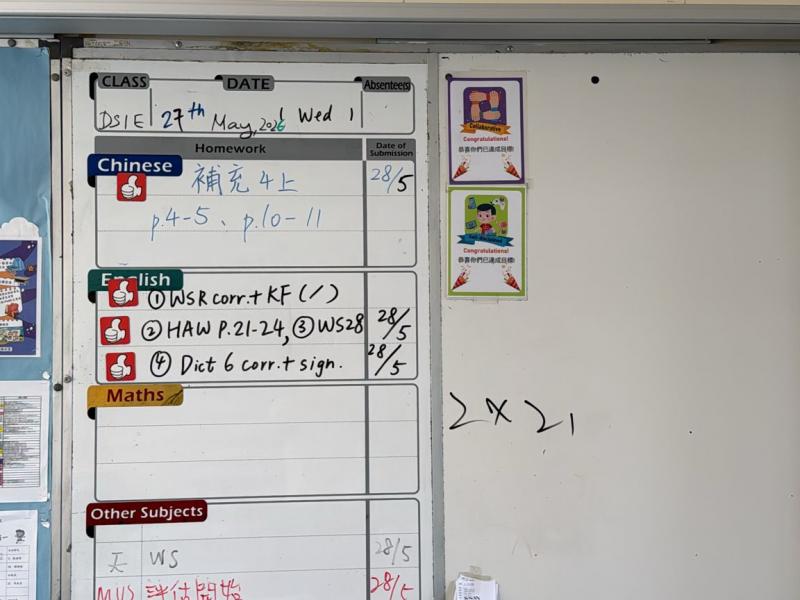 CLASS DATE Absentee(s)
DS1E 27th May, 2026 Wed 1
Homework Date of Submission
Chinese
補充4上 28/5
p.4-5、p.10-11
English
① WSR corr.+ KF (/)
② HAW P.21-24, ③ WS28 28/5
④ Dict 6 corr.+ sign. 28/5
Maths
Other Subjects
WS 28/5
MUS 評估開始 28/5
Collaborative
Congratulations!
恭喜你們已達成目標!
Congratulations!
恭喜你們已達成目標!
2 x 21